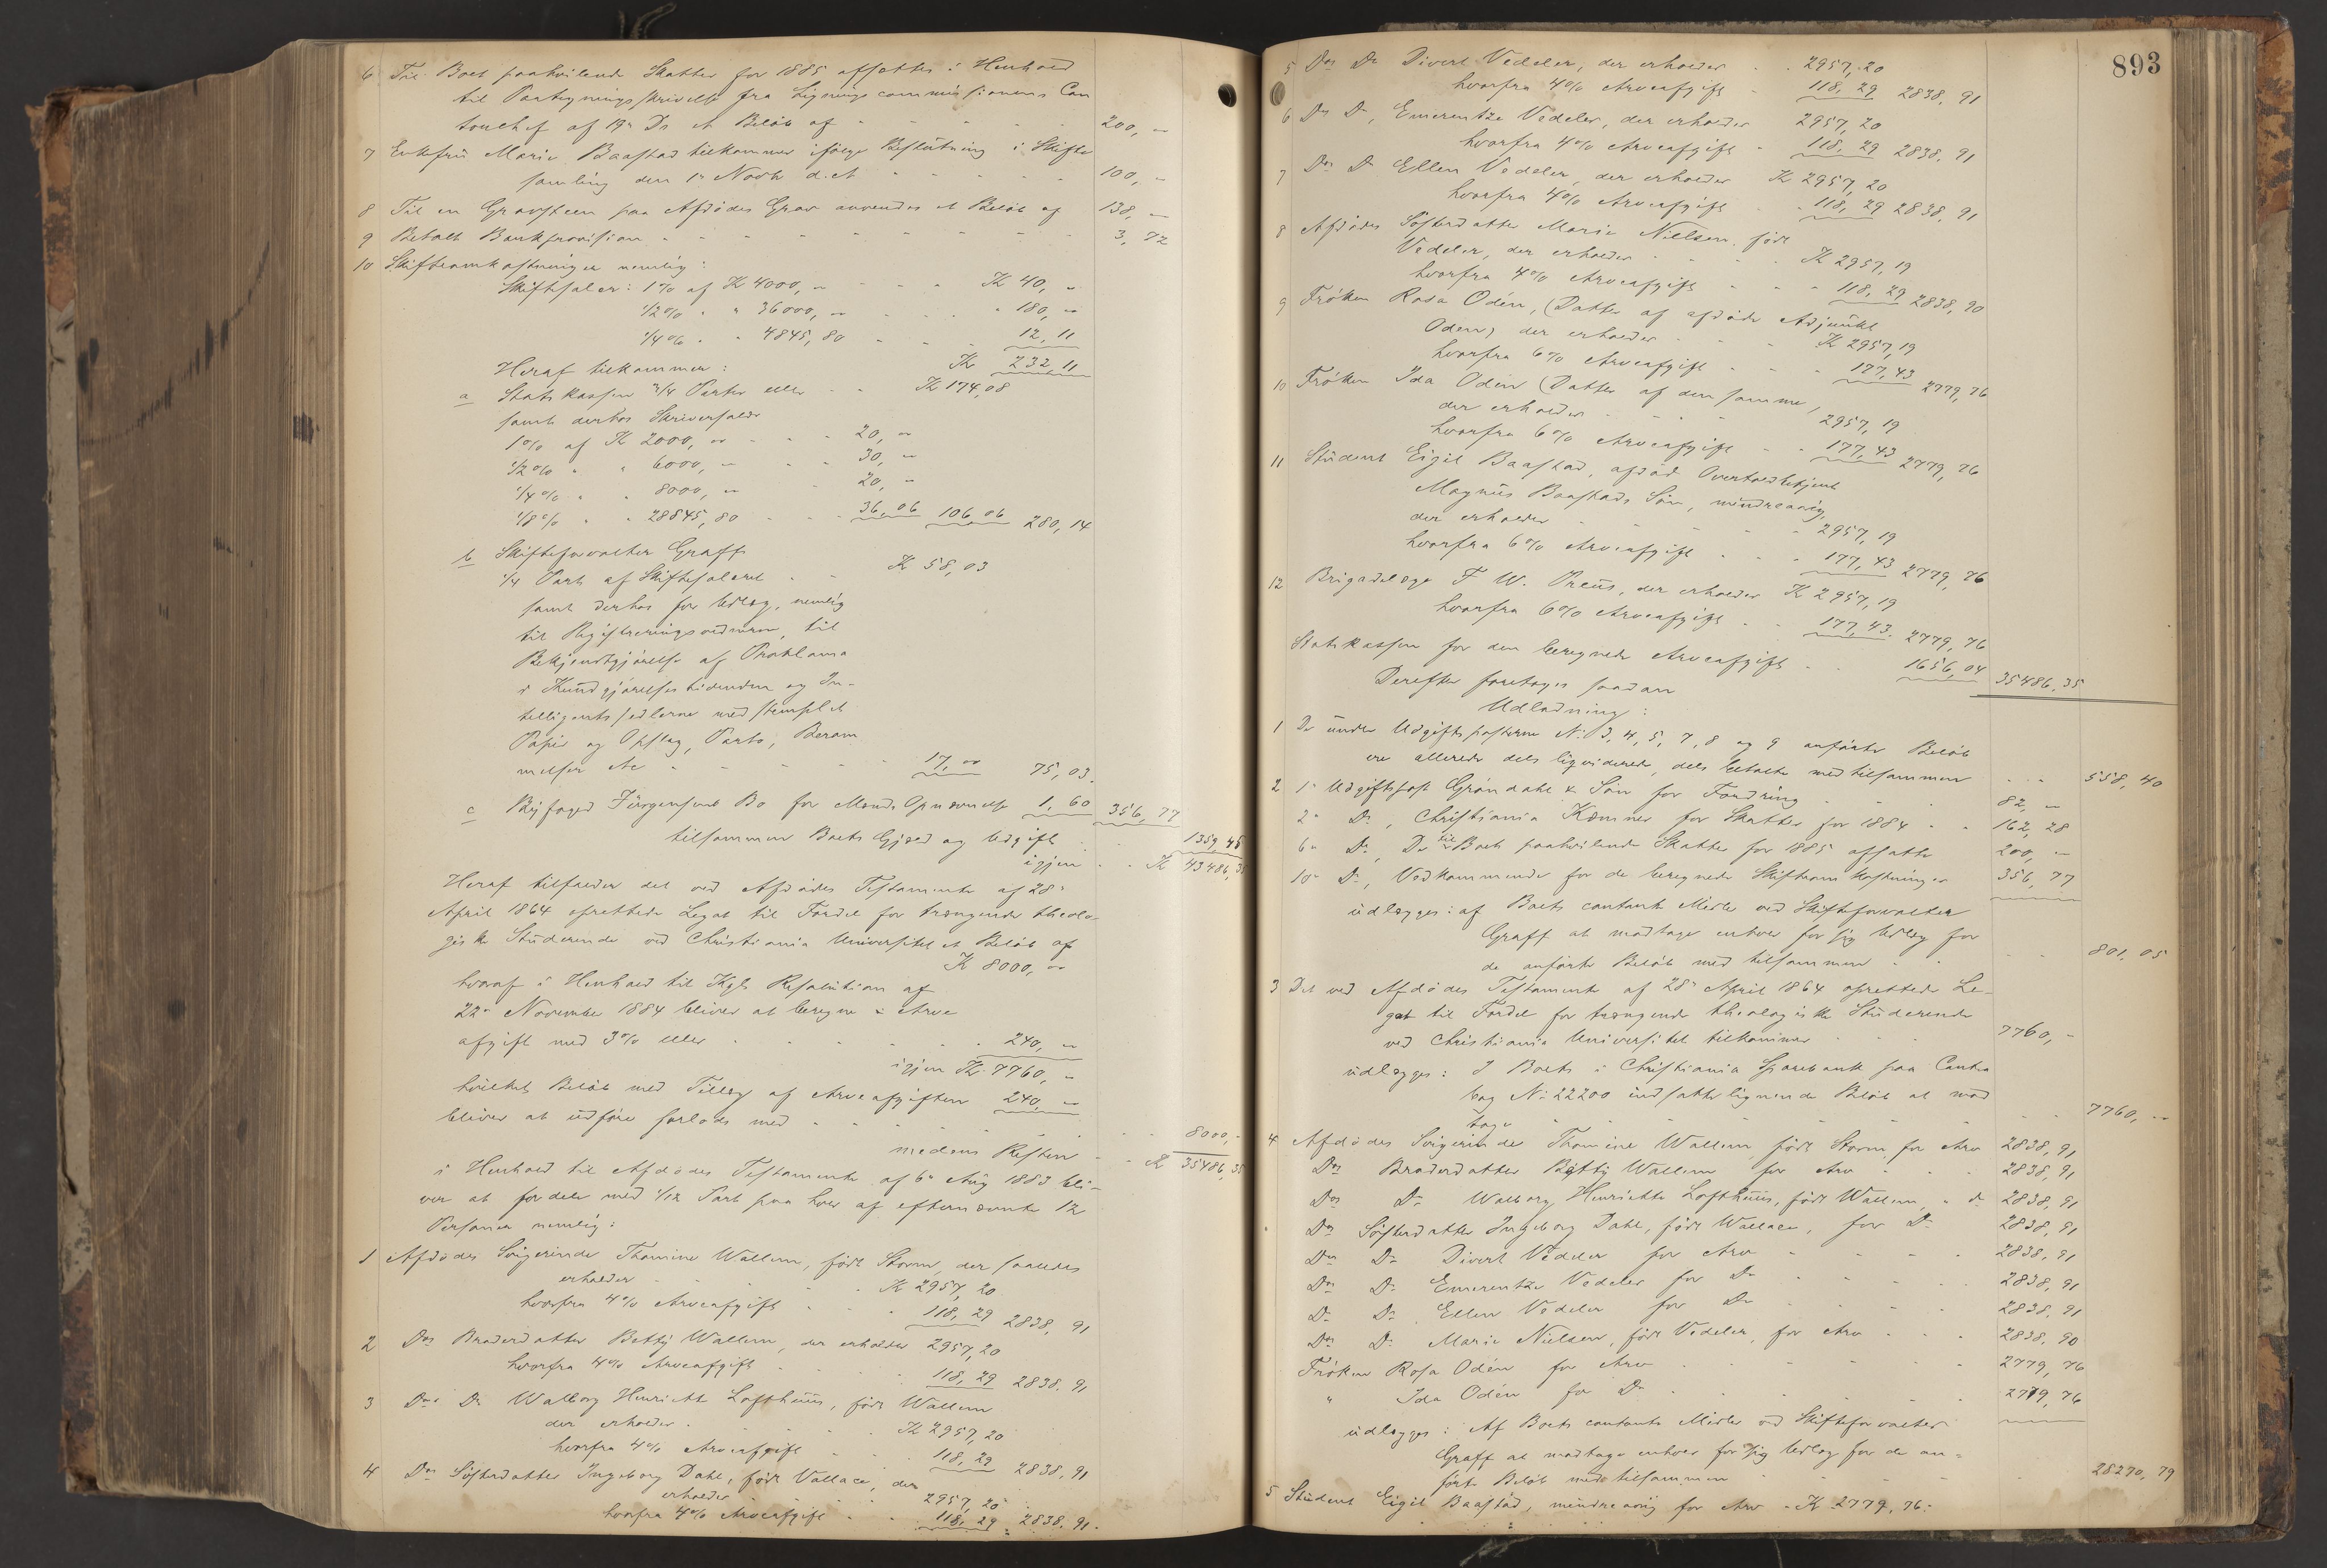 6 Til Boet paahvilende Skatter for 1885 afsættes i Henhold
til Paategningsskrivelse fra Ligningscommissionens Con
toirchef af 19n Ds et Beløb af - - - - 200, "
7 Enkefru Marie Baastad tilkommer ifølge Beslutning i Skifte
samling den 1n Novbr d.A. - - - - 100, "
8 Til en Gravsteen paa Afdødes Grav anvendes et Beløb af 138, "
9 Betalt Bankprovision - - - - 3, 72
10 Skifteomkostninger nemlig:
Skiftesaler: 1% af K 4000, " - - - K 40, "
1/2% " " 36000, " - - - " 180, "
1/4% " " 4845, 80 - - - 12, 11
K 232, 11
Heraf tilkommer:
a Statskassen 3/4 Parter eller - - K 174, 08
samt derhos Skriversaler
1% af K 2000, " - - - 20, "
1/2% " " 6000, " - - 30, "
1/4% " " 8000, " - - 20, "
1/8% " " 28845, 80 - - - 36, 06 106, 06 280, 14
b Skifteforvalter Graff
1/4 Part af Skiftesalæret - - K 58, 03
samt derhos for Udlæg, nemlig
til Registreringsvidnerne, til
Bekjendtgjørelse af Proklama
i Kundgjørelsestidenden og In-
telligentssedlerne med stemplet
Papir og Opslag, Porto, Beram
melser etc - - - - 17, " 75, 03.
c Byfoged Jürgensens Bo for Mænds Opnævnelse 1, 60 356, 77
tilsammen Boets Gjæld og Udgift - - 1359, 45
igjen - - K 43486, 35
Heraf tilfalder det ved Afdødes Testamente af 28n
April 1864 oprettede Legat til Fordel for trængende theolo-
giske Studerende ved Christiania Universitet et Beløb af
K 8000, "
hvoraf i Henhold til Kgl. Resolution af
22n November 1884 bliver at beregne i Arve
afgift med 3% eller - - - - 240, "
igjen K. 7760, "
hvilket Beløb med Tillæg af Arveafgiften 240, "
bliver at udføre forlods med - - - - 8000, -
medens Resten - - K 35486, 35
i Henhold til Afdødes Testamente af 6n Aug 1883 bli-
ver at fordele med 1/12 Part paa hver af efternævnte 12
Personer nemlig:
1 Afdødes Svigerinde Thomine Wallem, født Storm, der saaledes
erholder - - - K 2957, 20
hvorfra 4% Arveafgift - - - 118, 29 2838, 91
2 Ds Broderdatter Betty Wallem, der erholder 2957, 20
hvorfra 4% Arveafgift - - - 118, 29 2838, 91
3 Ds Do Walborg Henriette Lofthuus, født Wallem
der erholder - - - K 2957, 20
hvorfra 4% Arveafgift - - 118, 29 2838, 91
4 Ds Søsterdatter Ingeborg Dahl, født Vallace, der
erholder - - - 2957, 20
hvorfra 4% Arveafgift - - 118, 29 2838, 91.
893
5 Ds Do Divert Vedeler, der erholder - - 2957, 20
hvorfra 4% Arveafgift - 118, 29 2838, 91
6 Ds Do, Emerentze Vedeler, der erholder 2957, 20
hvorfra 4% Arveafgift - 118, 29 2838, 91
7 Ds Do Ellen Vedeler, der erholder K 2957, 20
hvorfra 4% Arveafgift - 118, 29 2838, 91
8 Afdødes Søsterdatter Marie Nielsen, født
Vedeler, der erholder - - - K 2957, 19
hvorfra 4% Arveafgift - - - 118, 29 2838, 90
9 Frøken Rosa Odén, (Datter af afdøde Adjunkt
Oden) der erholder - - - K 2957, 19
hvorfra 6% Arveafgift - - - 177, 43 2779, 76
10 Frøken Ida Odén (Datter af den samme,
der erholder - - - - 2957, 19
hvorfra 6% Arveafgift - - 177, 43 2779, 76
11 Student Eigil Baastad, afdød Overtoldbetjent
Magnus Baastads Søn, mindreaarig,
der erholder - - - - 2957, 19
hvorfra 6% Arveafgift - - - 177, 43 2779, 76
12 Brigadelæge F. W. Preus, der erholder K 2957, 19
hvorfra 6% Arveafgift - - 177, 43. 2779, 76
Statskassen for den beregnede Arveafgift - - 1656, 04 35486, 35
Derefter foretages saadan
Udlodning:
1 De under Udgiftsposterne No 3, 4, 5, 7, 8 og 9 anførte Beløb
ere allerede dels liqviderede, dels betalte med tilsammen - - 558, 40
2 1n Udgiftspost Grøndahl & Søn for Fordring - - 82, "
2n Do, Christiania Kæmner for Skatter for 1884 - - 162, 28
6n Do, De til Boets paahvilende Skatter for 1885 afsatte 200, "
10n Do, Vedkommende for de beregnede Skifteomkostninger 356, 77
udlægges: af Boets contante Midler ved Skifteforvalter
Graff at modtage enhver for sig Udlæg for
de anførte Beløb med tilsammen - - 801, 05
3 Det ved Afdødes Testamente af 28n April 1864 oprettede Le-
gat til Fordel for trængende theologiske Studerende
ved Christiania Universitet tilkommer - - - 7760, -
udlægges: I Boets i Christiania Sparebank paa Contra
bog No 22200 indsatte lignende Beløb at mod
tage - - - - 7760, "
4 Afdødes Svigerinde Thomine Wallem, født Storm, for Arv 2838, 91
Ds Broderdatter Betty Wallem for Arv - - - 2838, 91
Ds Do Walborg Henriette Lofthuus, født Wallem, " do 2838, 91
Ds Søsterdatter Ingeborg Dahl, født Wallace, for Do 2838, 91
Ds Do Divert Vedeler for Arv - - - - 2838, 91
Ds Do Emerentze Vedeler for Do - - - 2838, 91
Ds Do Ellen Vedeler for Do - - - 2838, 91
Ds Do Marie Nielsen, født Vedeler, for Arv - - - 2838, 90
Frøken Rosa Odén for Arv - - - - 2779, 76
" Ida Odén for Do - - - - 2779, 76
udlægges: Af Boets contante Midler ved Skifteforvalter
Graff at modtage enhver for sig Udlæg for de an-
førte Beløb med tilsammen - - - 28270, 79
5 Student Eigil Baastad, mindreaarig for Arv - K 2779, 76: